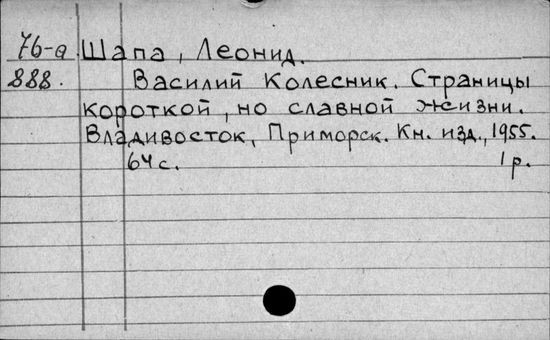 76-а Шапа, Леонид.
888. Василий Колесник. Страницы
короткой, но славной жизни.
Владивосток, Приморск. Кн. изд., 1955.
64 с. 1 р.